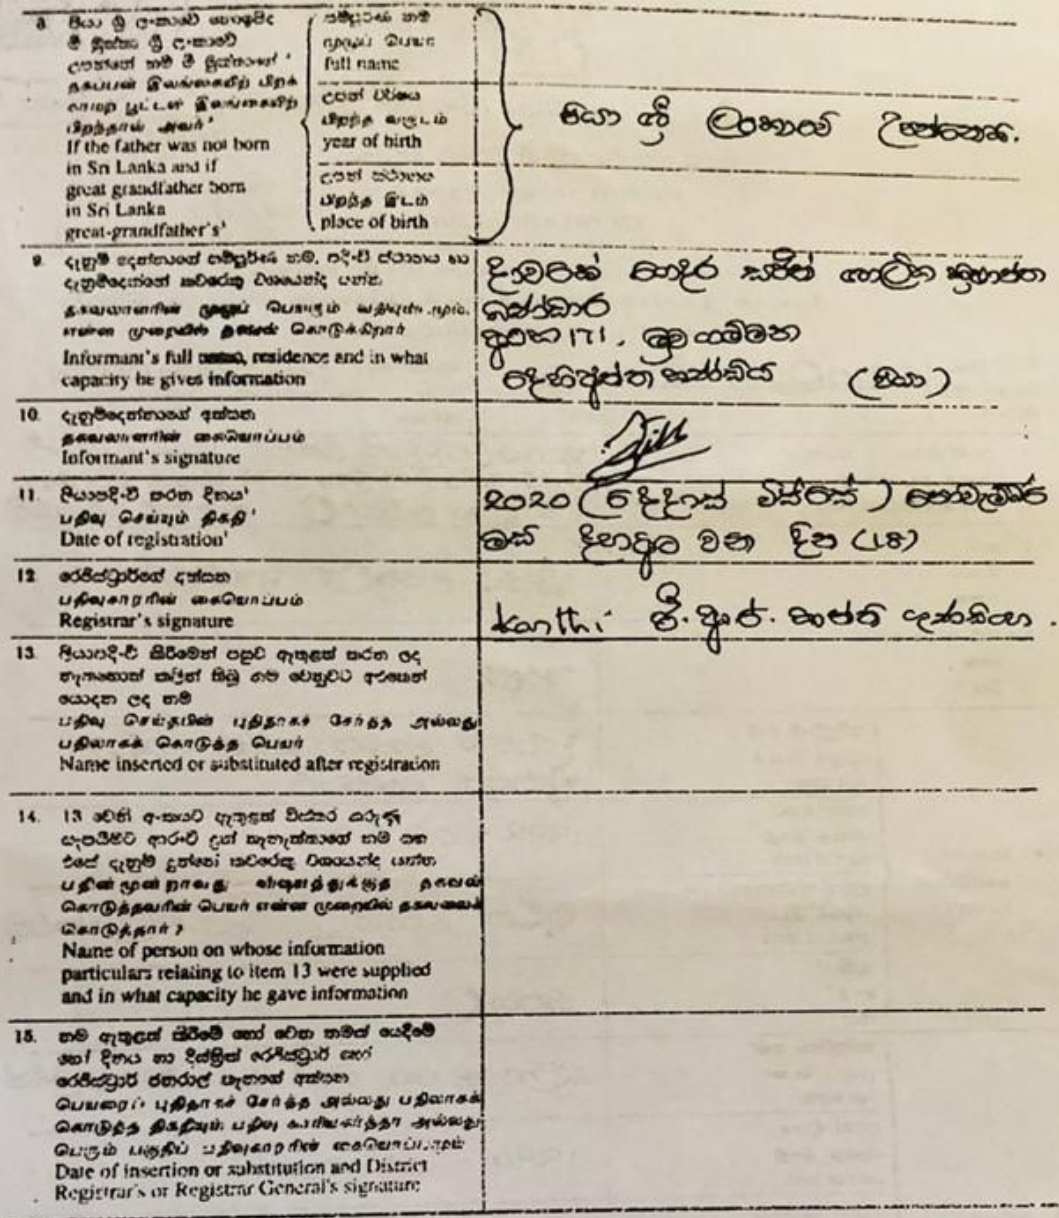 8 පියා ශ්‍රී ලංකාවේ නොඉපිද
මී මුත්තා ශ්‍රී ලංකාවේ
උපන්නේ නම් මී මුත්තාගේ
தகப்பன் இலங்கையிற் பிறக்
காமற் பூட்டன் இலங்கையிற்
பிறந்தால் அவர்
If the father was not born
in Sri Lanka and if
great grandfather born
in Sri Lanka
great-grandfather's
සම්පූර්ණ නම
முழுப் பெயர்
full name
උපන් වර්ෂය
பிறந்த வருடம்
year of birth
උපන් ස්ථානය
பிறந்த இடம்
place of birth
පියා ශ්‍රී ලංකාවේ උපන්නෙකි.
9. දැනුම් දෙන්නාගේ සම්පූර්ණ නම, පදිංචි ස්ථානය හා
දැනුම්දෙන්නේ කවරෙකු වශයෙන්ද යන්න
தகவலாளரின் முழுப் பெயரும் வதிவுமிடமும்,
என்ன முறையில் தகவல் கொடுக்கிறார்
Informant's full name, residence and in what
capacity he gives information
ගෙදර
බණ්ඩාර
අංක 171,
(පියා)
10. දැනුම්දෙන්නාගේ අත්සන
தகவலாளரின் கையொப்பம்
Informant's signature
11. ලියාපදිංචි කරන දිනය
பதிவு செய்யும் திகதி
Date of registration
2020 (දෙදාස් විස්සේ) නොවැම්බර්
මස් දහඅට වන දින (18)
12 රෙජිස්ට්‍රාර්ගේ අත්සන
பதிவுகாரரின் கையொப்பம்
Registrar's signature
Kanthi
13. ලියාපදිංචි කිරීමෙන් පසුව ඇතුළත් කරන ලද
නැතහොත් කලින් තිබූ නම වෙනුවට අළුතෙන්
යොදන ලද නම
பதிவு செய்தபின் புதிதாகச் சேர்த்த அல்லது
பதிலாகக் கொடுத்த பெயர்
Name inserted or substituted after registration
14. 13 වෙනි අංකයට ඇතුළත් විස්තර කරුණු
සැපයීමට ආරංචි දුන් තැනැත්තාගේ නම සහ
එසේ දැනුම් දුන්නේ කවරෙකු වශයෙන්ද යන්න
பதின் மூன்றாவது விஷயத்துக்குத் தகவல்
கொடுத்தவரின் பெயர் என்ன முறையில் தகவலைக்
கொடுத்தார் ?
Name of person on whose information
particulars relating to item 13 were supplied
and in what capacity he gave information
15. නම ඇතුළත් කිරීමේ හෝ වෙන නමක් යෙදීමේ
හෝ දිනය හා දිස්ත්‍රික් රෙජිස්ට්‍රාර් හෝ
රෙජිස්ට්‍රාර් ජනරාල් තැනගේ අත්සන
பெயரைப் புதிதாகச் சேர்த்த அல்லது பதிலாகக்
கொடுத்த திகதியும், பதிவு காரியகர்த்தா அல்லது
பெரும் பகுதிப் பதிவுகாரரின் கையொப்பமும்
Date of insertion or substitution and District
Registrar's or Registrar General's signature